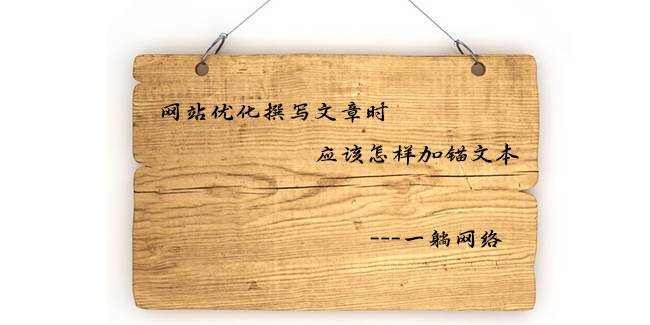 网站优化撰写文章时
应该怎样加锚文本
---一躺网络